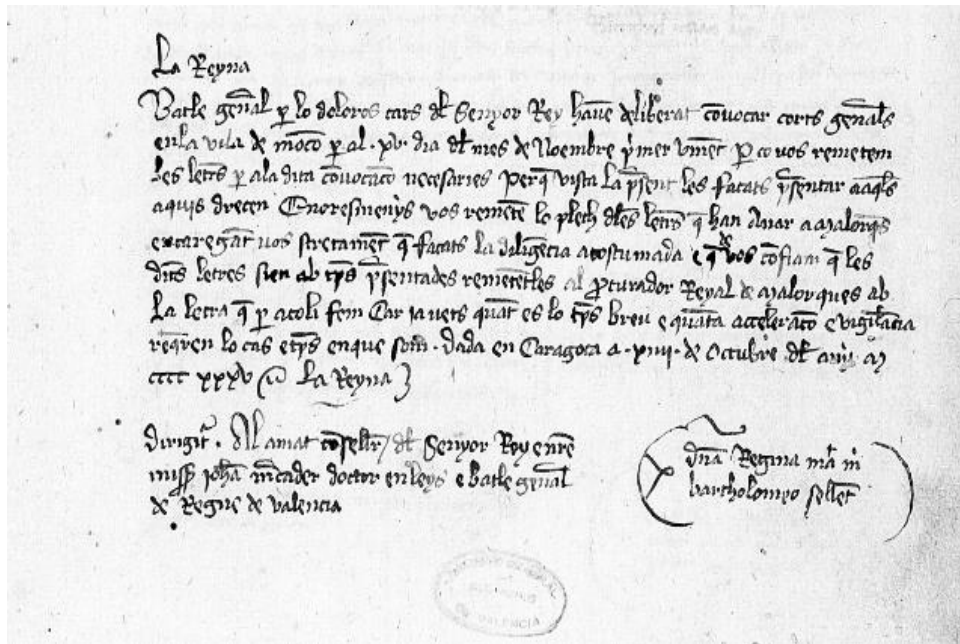 La Reyna
Batle gen̄al p̱ lo doloros cars dl̄ Senyor Rey havē deliberat cōvocar corts gen̄als
en la vila de mōtço p̱ al .xv. dia dl̄ mes de Noembre p̄mer vinēt P̱ ço vos remetem
les letr̄s p̱ a la dita cōvocaco necesaries Perq̄ vista la p̄sent les façats p̄sentar a aq̄ls
a quis drecen E no resmenȳs vos remetē lo plech dl̄es letr̄s q̄ han Anar a Malorq̄s
encaregāt vos stretamēt q̄ façats la diligēcia acostumada e q̄ de vos cōfiam q̄ les
dit̄s letres sien ab tp̄s p̄sentades remetētles al p̱curador Reyal de Malorques ab
La letra q̄ p̱ açoli fem Car ja vets quāt es lo tp̄s breu e quāta acceleraco e vigilācia
req̄ren lo cas e tp̄s en que som̄ . dada en Caragoça a .xiiii. de Octubre dl̄ any M
cccc xxxv La Reyna
dirigit̄ . Al amat cōseller dl̄ Senyor Rey en̄re
miss̄ johā m̄cader doctor en leys e batle gen̄al
de Regne de valencia
dn̄a Regina mā m̄
bartholomeo sellēt
VALENCIA